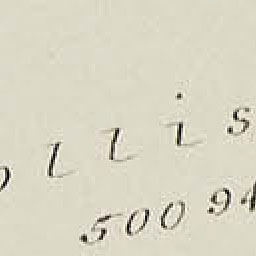 ollis
500 94